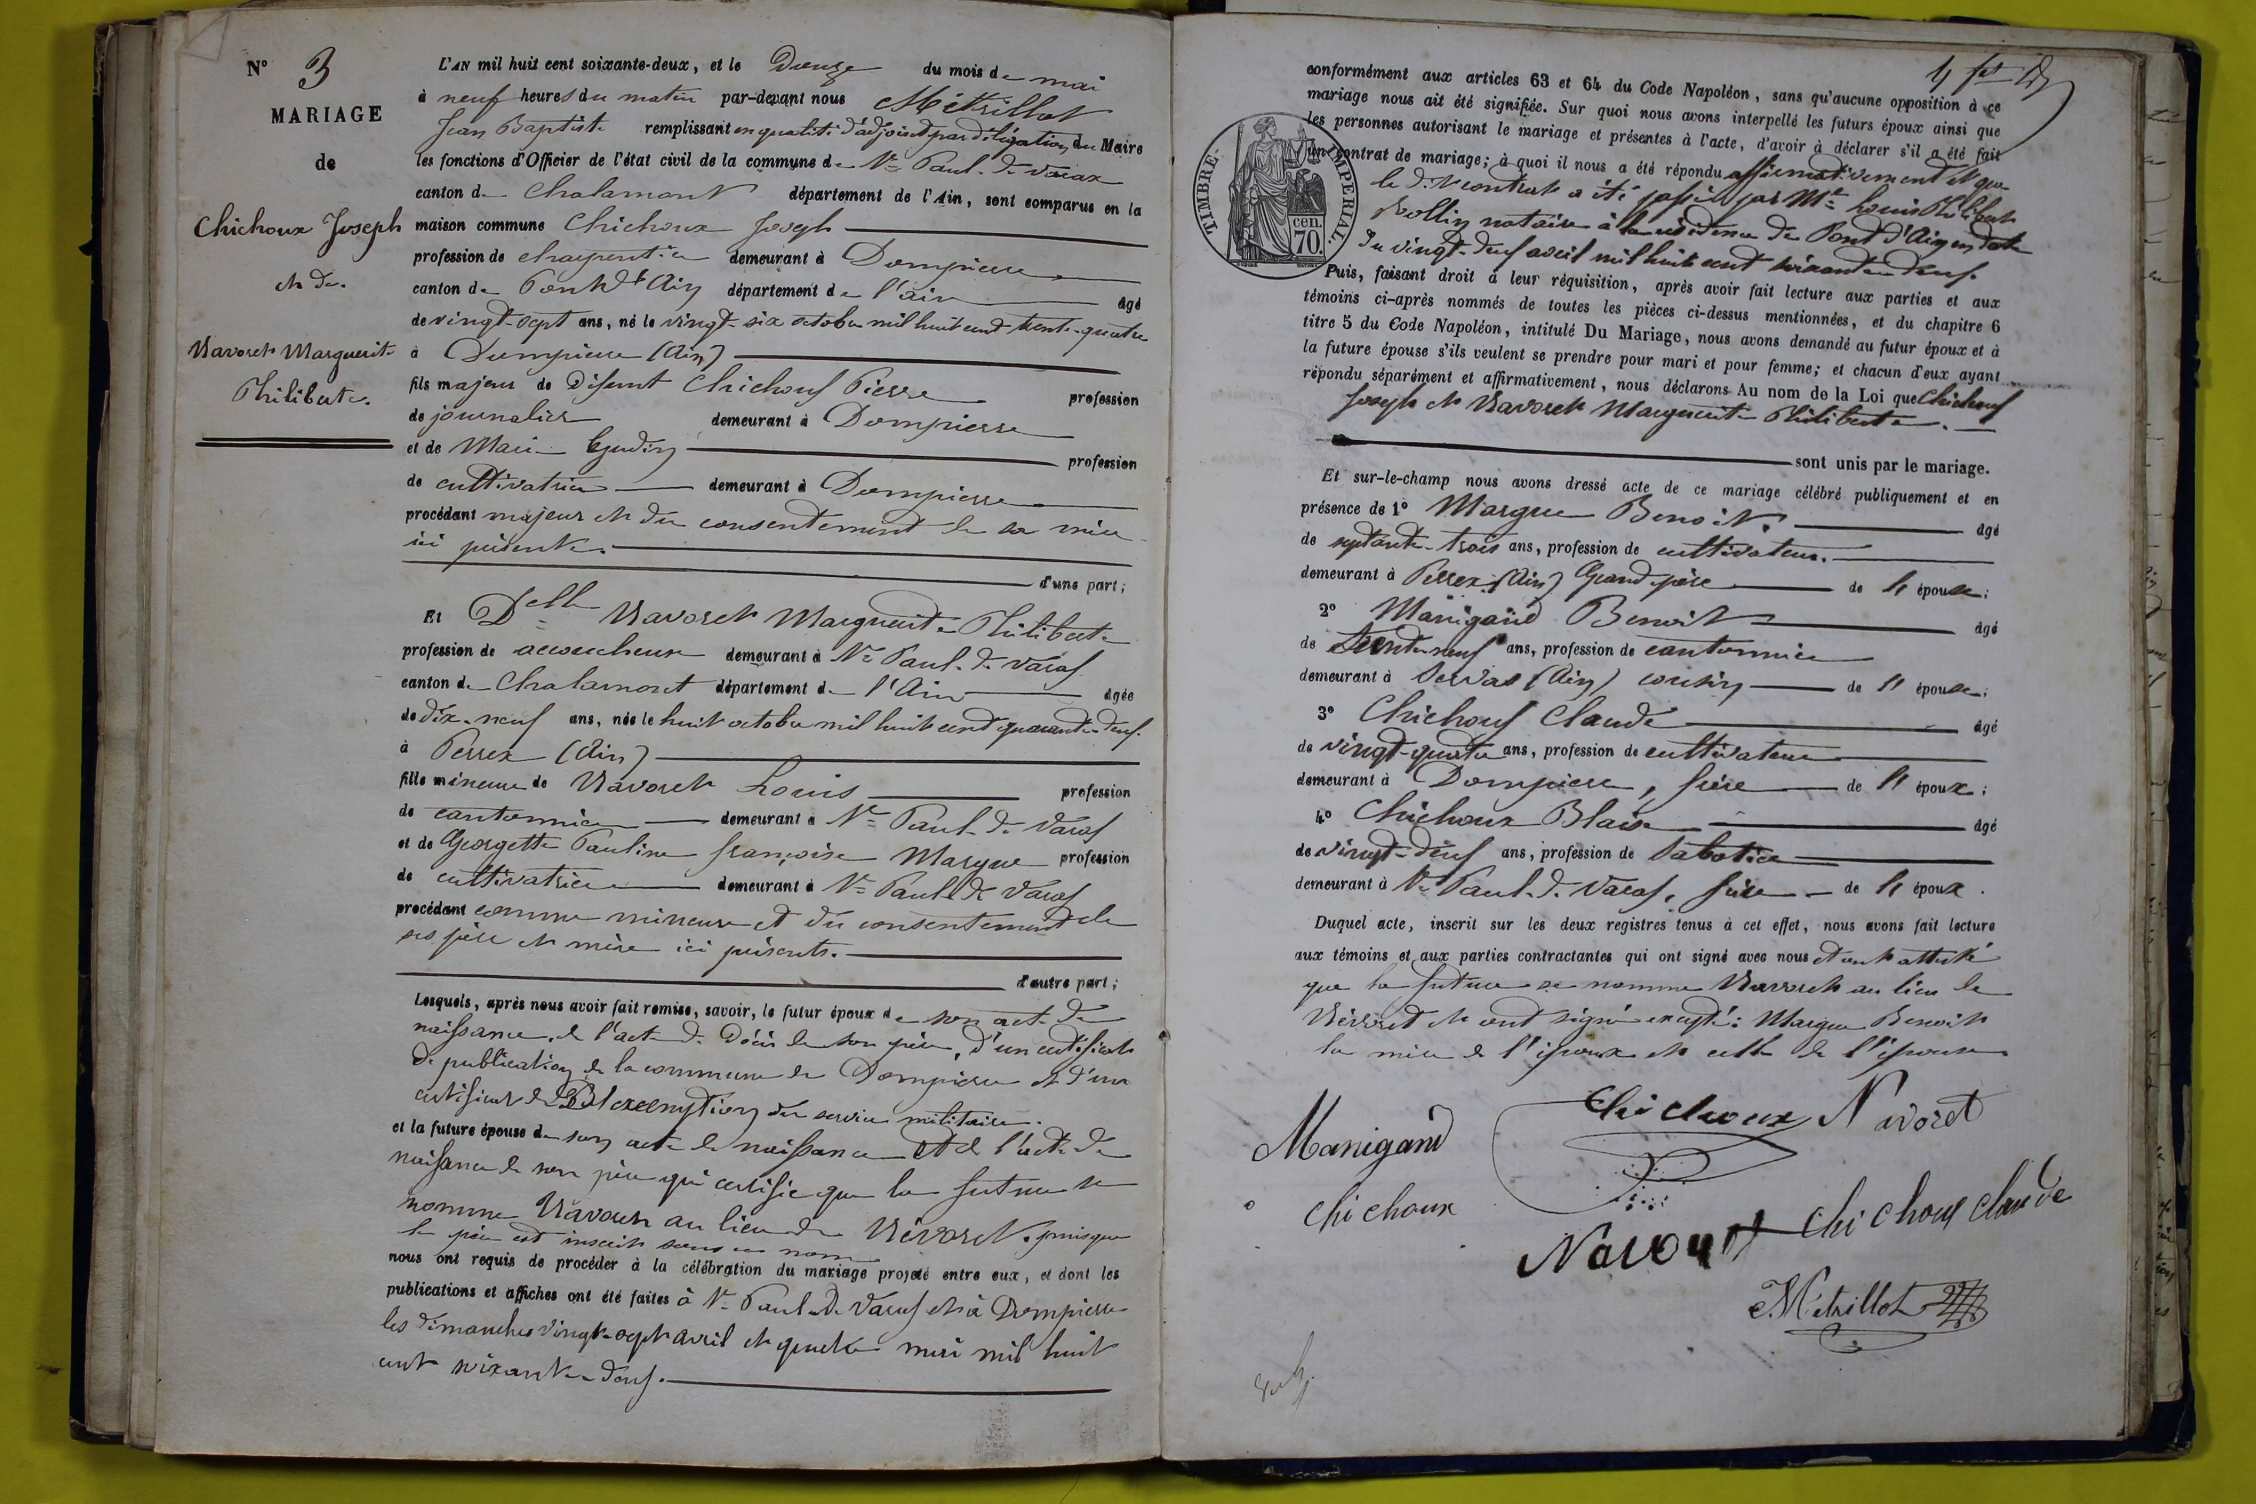 N° 3
MARIAGE
de
Chichoux Joseph
et de
Navoret Marguerite
Philiberte.
L'AN mil huit cent soixante-deux, et le Douze du mois de mai
à neuf heures du matin par-devant nous Métrillot
Jean Baptiste remplissant en qualité d'adjoint par délégation du Maire
les fonctions d'Officier de l'état civil de la commune de St Paul de Varax
canton de Chalamont département de l'Ain, sont comparus en la
maison commune Chichoux Joseph
profession de charpentier demeurant à Dompierre
canton de Pont d'Ain département de l'ain âgé
de vingt-sept ans, né le vingt-six octobre mil huit cent trente-quatre
à Dompierre (Ain)
fils majeur de Défunt Chichoux Pierre profession
de journalier demeurant à Dompierre
et de Marie Gudin profession
de cultivatrice demeurant à Dompierre
procédant majeur et du consentement de sa mère
ici présente.
d'une part;
Et Delle Navoret Marguerite Philiberte
profession de accoucheuse demeurant à St Paul de Varax
canton de Chalamont département de l'Ain âgée
de dix-neuf ans, née le huit octobre mil huit cent quarante-deux
à Perrex (Ain)
fille mineure de Navoret Louis profession
de cantonnier demeurant à St Paul de Varax
et de Georgette Pauline françoise Margue profession
de cultivatrice demeurant à St Paul de Varax
procédant comme mineure et du consentement de
ses père et mère ici présents.
d'autre part;
Lesquels, après nous avoir fait remise, savoir, le futur époux de son acte de
naissance, de l'acte de Décès de son père, d'un certificat
de publication de la commune de Dompierre et d'un
certificat de exemption du service militaire.
et la future épouse de son acte de naissance et de l'acte de
naissance de son père qui certifie que la future se
nomme Navoret au lieu de Névoret. puisque
le père est inscrit sous ce nom
nous ont requis de procéder à la célébration du mariage projeté entre eux, et dont les
publications et affiches ont été faites à St Paul de Varax et à Dompierre
les dimanches vingt-sept avril et quatre mai mil huit
cent soixante-deux.
conformément aux articles 63 et 64 du Code Napoléon, sans qu'aucune opposition à ce
mariage nous ait été signifiée. Sur quoi nous avons interpellé les futurs époux ainsi que
les personnes autorisant le mariage et présentes à l'acte, d'avoir à déclarer s'il a été fait
un contrat de mariage; à quoi il nous a été répondu affirmativement et que
le dit contrat a été passé par Me Louis Philibert
Rollin notaire à la résidence de Pont d'Ain en date
du vingt-deux avril mil huit cent soixante-deux.
TIMBRE IMPERIAL.
70 cen.
Puis, faisant droit à leur réquisition, après avoir fait lecture aux parties et aux
témoins ci-après nommés de toutes les pièces ci-dessus mentionnées, et du chapitre 6
titre 5 du Code Napoléon, intitulé Du Mariage, nous avons demandé au futur époux et à
la future épouse s'ils veulent se prendre pour mari et pour femme; et chacun d'eux ayant
répondu séparément et affirmativement, nous déclarons Au nom de la Loi que Chichoux
Joseph et Navoret Marguerite Philiberte.
sont unis par le mariage.
Et sur-le-champ nous avons dressé acte de ce mariage célébré publiquement et en
présence de 1° Margue Benoit. âgé
de septante-trois ans, profession de cultivateur.
demeurant à Perrex (Ain) Grand-père de l'épouse;
2° Manigand Benoit âgé
de trente neuf ans, profession de cantonnier
demeurant à Servas (Ain) cousin de l'épouse;
3° Chichoux Claude âgé
de vingt-quatre ans, profession de cultivateur
demeurant à Dompierre, frère de l'époux;
4° Chichoux Blaise âgé
de vingt-deux ans, profession de Sabotier
demeurant à St Paul de Varax, frère de l'époux.
Duquel acte, inscrit sur les deux registres tenus à cet effet, nous avons fait lecture
aux témoins et aux parties contractantes qui ont signé avec nous et ont attesté
que la future se nomme Navoret au lieu de
Névoret et ont signé excepté: Margue Benoit
la mère de l'époux et celle de l'épouse
Chichoux Navoret
Manigand
Chichoux
Navoret Chichoux Claude
Métrillot